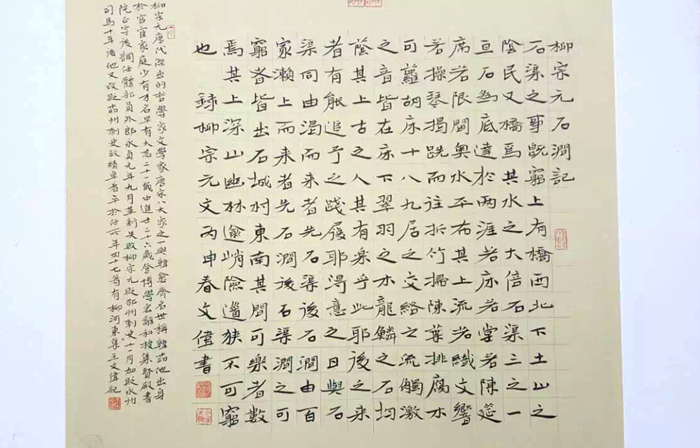 柳宗元石澗記
石渠之事既窮上有橋西北下土山之
陰民又橋焉其水之大倍石渠三之一
亘石為底達於兩涯若床若堂若陳筵
席若限閫奧水平布其上流若織文響
若操琴揭跣而往折竹掃陳葉排腐水
可蘿胡床十八九居之交絡之流觸激
之音皆在床下翠羽之水龍鱗之石均
蔭其上古之人其有樂乎此耶後之來
者有能追予之踐履耶得意之日與石
渠同由渴而來者先石渠後石澗由百
家瀨上而來者先石澗後石渠澗之可
窮者皆出石城村東南其間可樂者數
焉其上深山幽林逾峭險道狹不可窮
也 錄柳宗元文丙申春文偉書
柳宗元唐代傑出的哲學家文學家唐宋八大家之一與韓愈齊名世稱韓柳他出身
於官宦家庭少有才名早有大志二十一歲中進士二十六歲登博學宏辭科授集賢殿書
院正字後調任禮部員外郎永貞元年九月革新失敗柳宗元貶邵州刺史十一月加貶永州
司馬十年後他又改貶柳州刺史政績卓著卒於任所年四十七著有柳河東集王文偉記